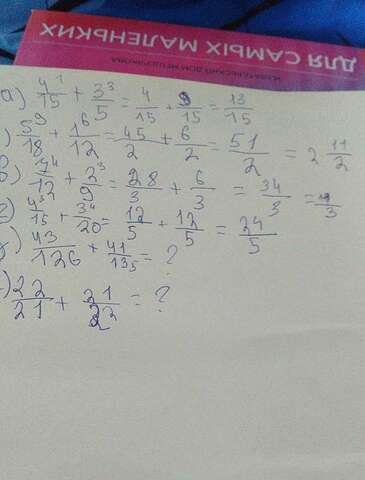 ДЛЯ САМЫХ МАЛЕНЬКИХ
а) 4¹/15 + 3³/5 = 4/15 + 9/15 = 13/15
) 5⁹/18 + 1⁶/12 = 45/2 + 6/2 = 51/2 = 2 11/2
в) 7⁴/12 + 2³/9 = 28/3 + 6/3 = 34/3 =
г) 4³/15 + 3⁴/20 = 12/5 + 12/5 = 24/5
) 43/126 + 41/135 = ?
) 22/21 + 21/22 = ?